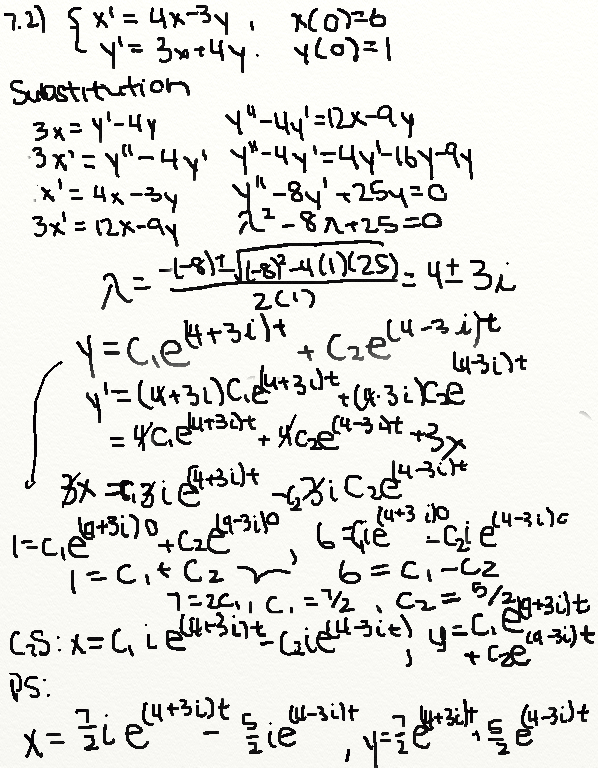 7.2) { x' = 4x-3y, x(0)=6
y' = 3x+4y. y(0)=1
Substitution
3x = y'-4y y''-4y'=12x-9y
3x' = y''-4y' y''-4y'=4y'-16y-9y
x' = 4x-3y y''-8y'+25y=0
3x' = 12x-9y λ²-8λ+25=0
λ = (-(-8)±√((-8)²-4(1)(25)))/(2(1)) = 4±3i
y = C₁e^(4+3i)t + C₂e^(4-3i)t
y' = (4+3i)C₁e^(4+3i)t + (4-3i)C₂e^(4-3i)t
= 4C₁e^(4+3i)t + 4C₂e^(4-3i)t + 3x
3x = C₁3ie^(4+3i)t - C₂3iC₂e^(4-3i)t
1=C₁e^(4+3i)0 + C₂e^(4-3i)0, 6=C₁ie^(4+3i)0 - C₂ie^(4-3i)0
1 = C₁+C₂ 6 = C₁-C₂
7=2C₁, C₁=7/2, C₂=5/2
GS: x=C₁ie^(4+3i)t - C₂ie^(4-3it), y=C₁e^(4+3i)t
+C₂e^(4-3i)t
PS:
x = 7/2 ie^(4+3i)t - 5/2 ie^(4-3i)t, y=7/2 e^(4+3i)t + 5/2 e^(4-3i)t